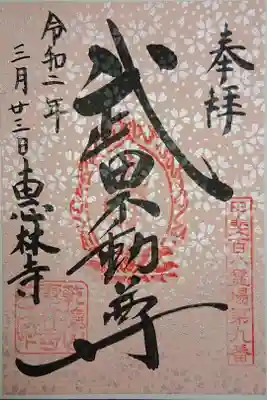 奉拝
甲斐百八霊場第九番
武田不動尊
令和二年
三月廿三日
恵林寺